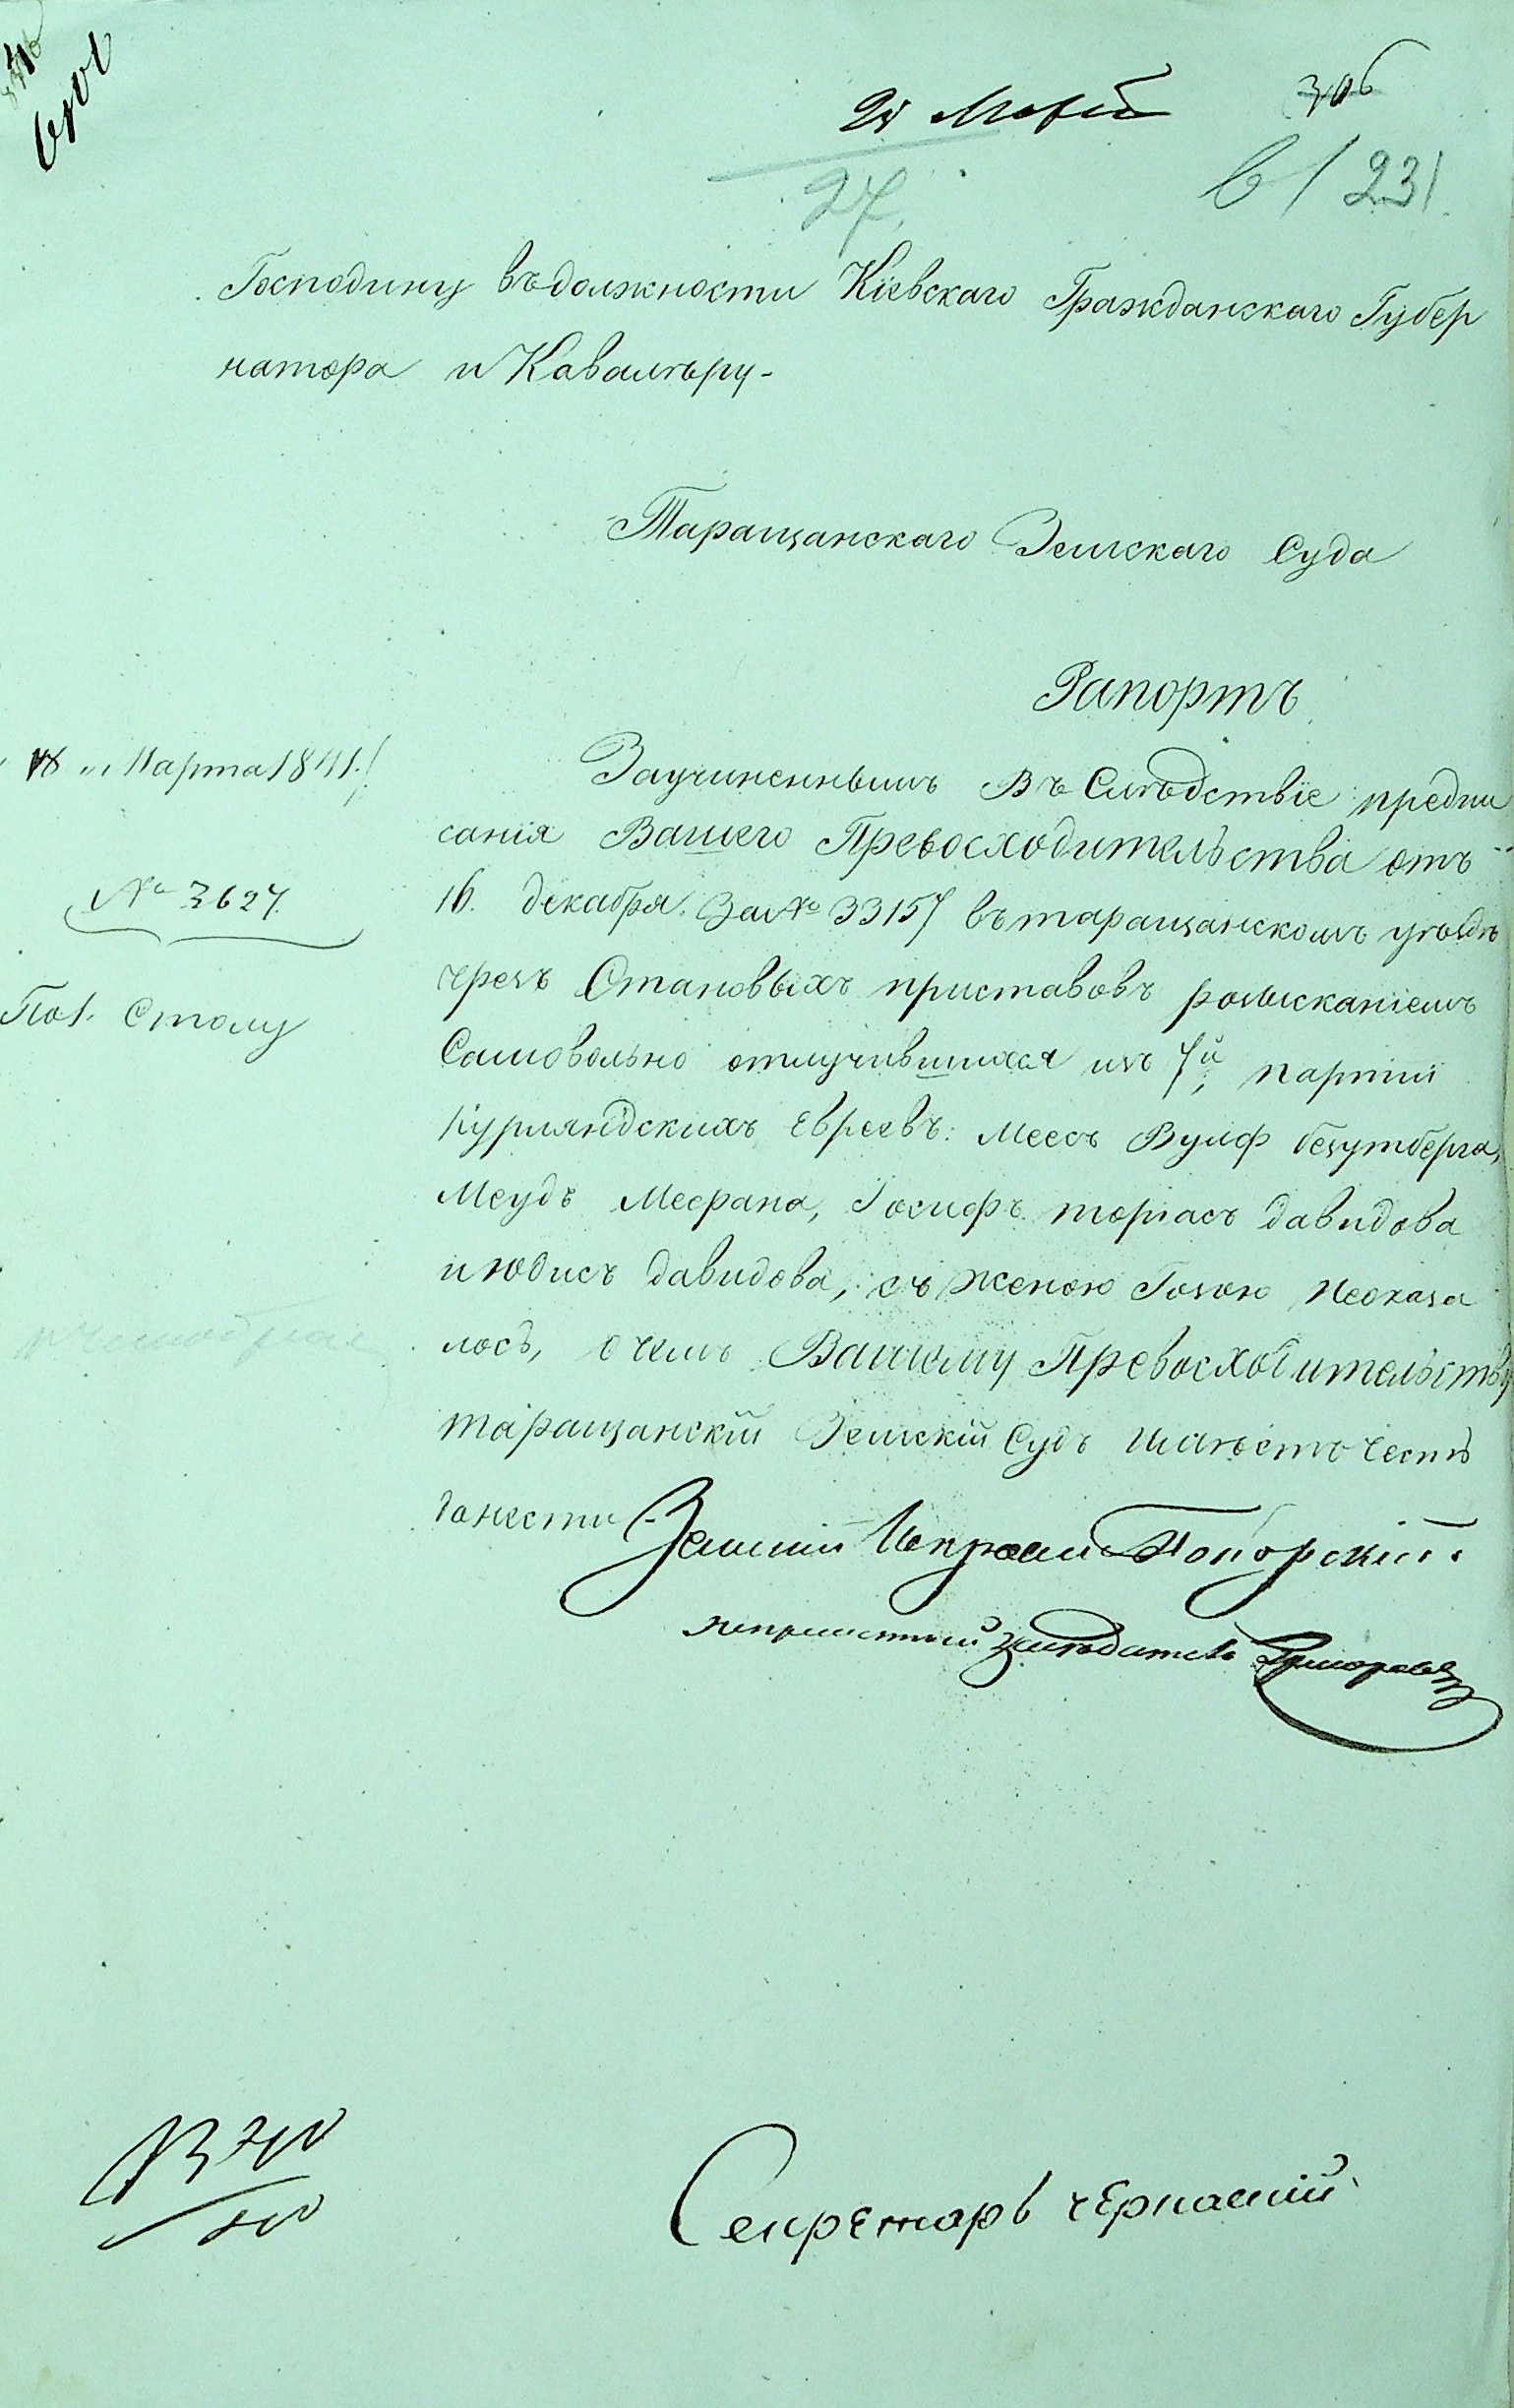 25 Март
306
27
231
Господину въ должности Кіевскаго Гражданскаго Губер
натора и Кавалѣру-
Таращанскаго Земскаго Суда
Рапортъ
Марта 1841
Заучиненнымъ Въ Слѣдствіе предпи
санія Вашего Превосходительства отъ
№ 3627.
16. декабря. За № 33157 въ таращанскомъ уѣздѣ
чрезъ Становыхъ приставовъ розысканіемъ
По 1. Столу
Самовольно отлучившихся изъ 7й, партіи
Курляндскихъ Евреевъ: Меесъ Вулф
Меудъ Меерана, Іосифъ торіасъ давидова
и юдисъ давидова, съ женою Гозою Неоказа
лось, о чемъ Вашему Превосходительству
таращанскій Земскій Судъ имѣетъ честь
данести-
Земскій Исправни
непременный засѣдатель
Секретарь